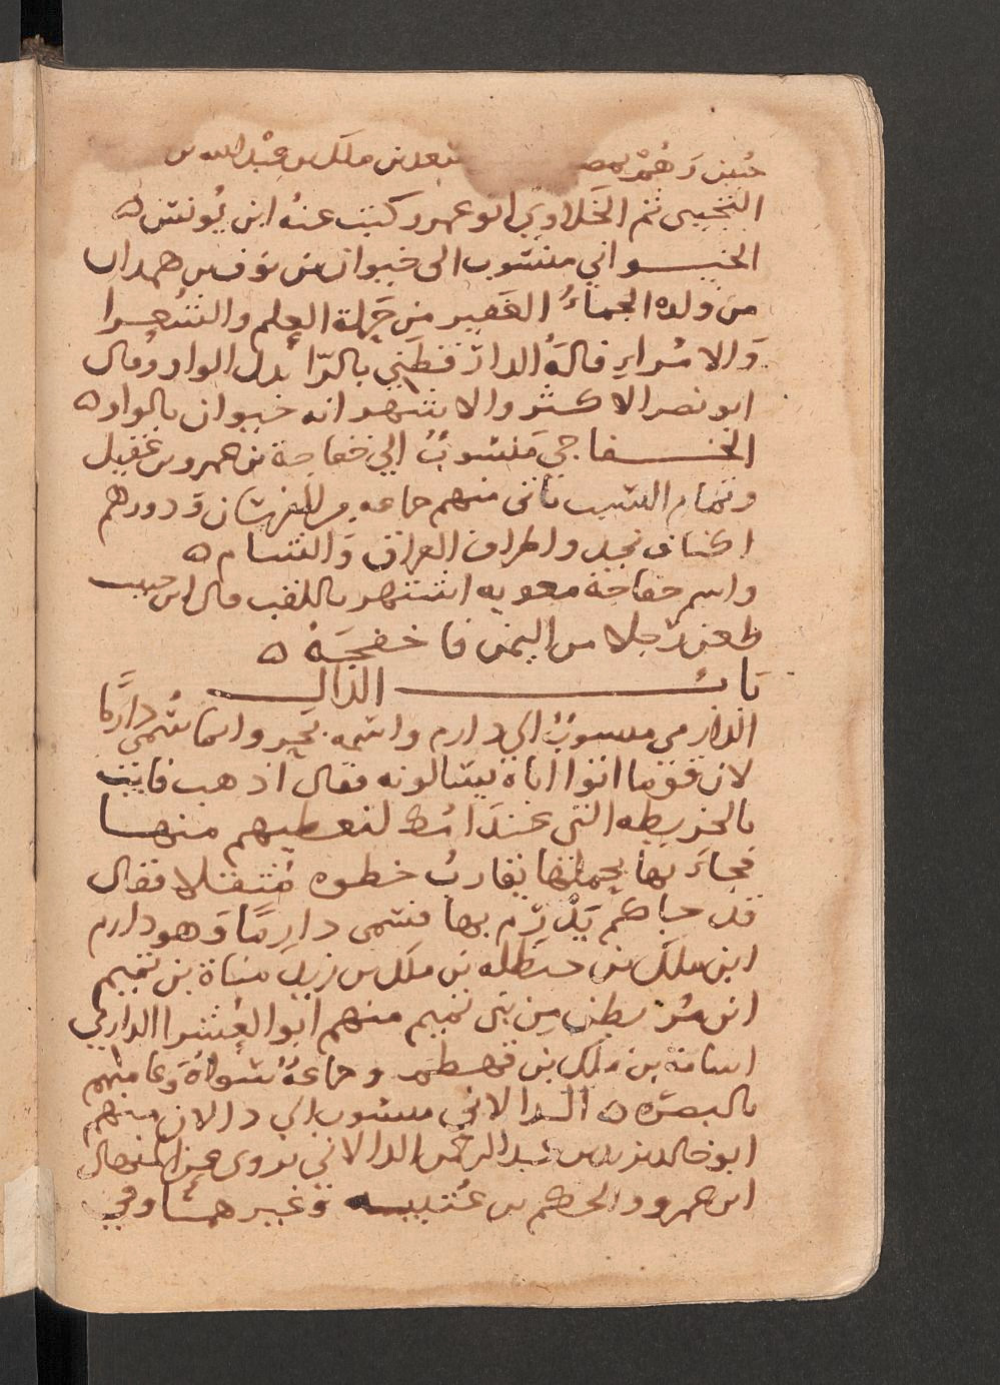 حنين وهم بمصر سعد بن ملك بن عبد الله بن
التجيبى ثم الخلاوي ابو عمرو كتبت عنه ابن يونس ه
الخيـــواني منسوب الى خيوان بن نوف بن همدان
من ولده الجماء الغفير من حملة العلم والشعرا
والامراء قاله الدارقطني بالرا بدل الواو وقال
ابو نصر الاكثر والاشهر انه خيوان بالواو ه
الخـــفاجي منسوب الي خفاجة بن عمرو بن عقيل
وتمام النسب ياتى منهم جماعه من الفرسان ودورهم
اكناف نجد واطراف العراق والشام ه
واسم خفاجة معويه اشتهر باللقب قال ابن حبيب
طعن رجلا من اليمن فاخفجه ه
بابــــــــ الدالـــــ
الدارمي منسوب الي دارم واسمه بحير وانما سمي دارما
لان قوما اتوا اباه يسالونه فقال اذهب فايت
بالخريطه التى عند امك لنعطيهم منهـــا
فجاء بها يحملها يقارب خطوه مثقلا فقال
قد جاكم يدرم بها فسمى دارما وهو دارم
ابن ملك بن حنظله بن ملك بن زيد مناة بن تميم
ابن مر بطن من بنى تميم منهم ابوا العشرا الدارمي
اسامة بن ملك بن قهطم وجماعة سواه وعامتهم
بالبصره ه الـدالاني منسوب الي دالان منهم
ابو خالد يزيد بن عبد الرحمن الدالاني يروى عن المنهال
ابن عمرو والحكم بن عتيبـــه وغيرهمـا وفي